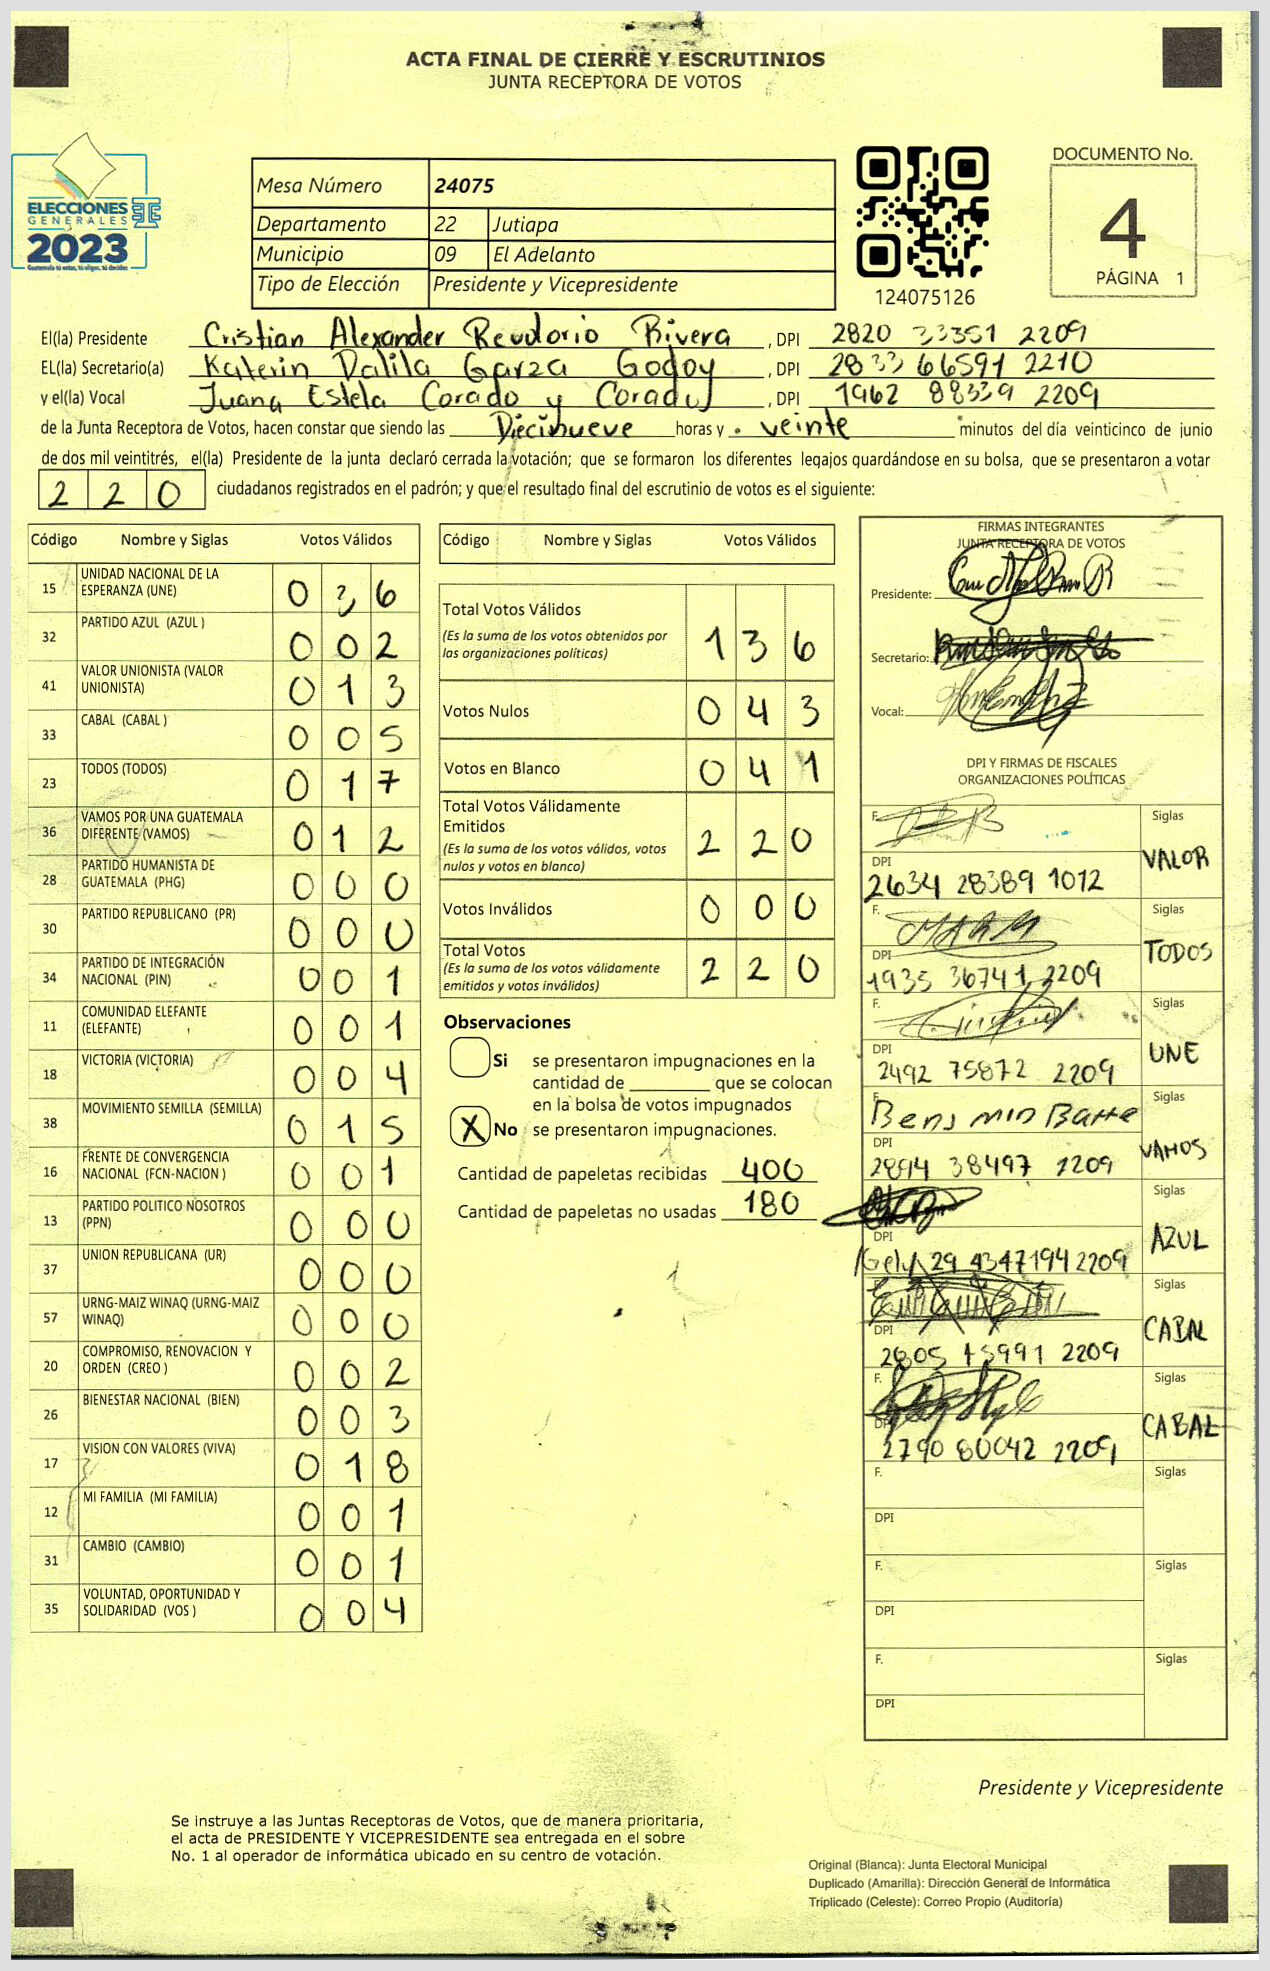 ACTA FINAL DE CIERRE Y ESCRUTINIOS
JUNTA RECEPTORA DE VOTOS
ELECCIONES
GENERALES
2023
Guatemala tú votas, tú eliges, tú decides
Mesa Número 24075
Departamento 22 Jutiapa
Municipio 09 El Adelanto
Tipo de Elección Presidente y Vicepresidente
124075126
DOCUMENTO No.
4
PÁGINA 1
El(la) Presidente Cristian Alexander Reudorio Rivera , DPI 2820 33351 2209
EL(la) Secretario(a) Katerin Dalila Garza Godoy , DPI 2833 66591 2210
y el(la) Vocal Juana Estela Corado y Corado , DPI 1962 88339 2209
de la Junta Receptora de Votos, hacen constar que siendo las Diecinueve horas y veinte minutos del día veinticinco de junio
de dos mil veintitrés, el(la) Presidente de la junta declaró cerrada la votación; que se formaron los diferentes legajos guardándose en su bolsa, que se presentaron a votar
220 ciudadanos registrados en el padrón; y que el resultado final del escrutinio de votos es el siguiente:
Código Nombre y Siglas Votos Válidos
15 UNIDAD NACIONAL DE LA ESPERANZA (UNE) 0 3 6
32 PARTIDO AZUL (AZUL ) 0 0 2
41 VALOR UNIONISTA (VALOR UNIONISTA) 0 1 3
33 CABAL (CABAL ) 0 0 5
23 TODOS (TODOS) 0 1 7
36 VAMOS POR UNA GUATEMALA DIFERENTE (VAMOS) 0 1 2
28 PARTIDO HUMANISTA DE GUATEMALA (PHG) 0 0 0
30 PARTIDO REPUBLICANO (PR) 0 0 0
34 PARTIDO DE INTEGRACIÓN NACIONAL (PIN) 0 0 1
11 COMUNIDAD ELEFANTE (ELEFANTE) 0 0 1
18 VICTORIA (VICTORIA) 0 0 4
38 MOVIMIENTO SEMILLA (SEMILLA) 0 1 5
16 FRENTE DE CONVERGENCIA NACIONAL (FCN-NACION ) 0 0 1
13 PARTIDO POLITICO NOSOTROS (PPN) 0 0 0
37 UNION REPUBLICANA (UR) 0 0 0
57 URNG-MAIZ WINAQ (URNG-MAIZ WINAQ) 0 0 0
20 COMPROMISO, RENOVACION Y ORDEN (CREO ) 0 0 2
26 BIENESTAR NACIONAL (BIEN) 0 0 3
17 VISION CON VALORES (VIVA) 0 1 8
12 MI FAMILIA (MI FAMILIA) 0 0 1
31 CAMBIO (CAMBIO) 0 0 1
35 VOLUNTAD, OPORTUNIDAD Y SOLIDARIDAD (VOS ) 0 0 4
Código Nombre y Siglas Votos Válidos
Total Votos Válidos 1 3 6
(Es la suma de los votos obtenidos por
las organizaciones políticas)
Votos Nulos 0 4 3
Votos en Blanco 0 4 1
Total Votos Válidamente
Emitidos 2 2 0
(Es la suma de los votos válidos, votos
nulos y votos en blanco)
Votos Inválidos 0 0 0
Total Votos 2 2 0
(Es la suma de los votos válidamente
emitidos y votos inválidos)
Observaciones
Si se presentaron impugnaciones en la
cantidad de ________ que se colocan
en la bolsa de votos impugnados
X No se presentaron impugnaciones.
Cantidad de papeletas recibidas 400
Cantidad de papeletas no usadas 180
FIRMAS INTEGRANTES
JUNTA RECEPTORA DE VOTOS
Presidente:
Secretario:
Vocal:
DPI Y FIRMAS DE FISCALES
ORGANIZACIONES POLÍTICAS
F. Siglas
DPI VALOR
2634 28389 1012
F. Siglas
DPI TODOS
1935 36741 2209
F. Siglas
DPI UNE
2492 75872 2209
F. Siglas
DPI VAMOS
2894 38497 2209
Siglas
DPI AZUL
29 4347194 2209
F. Siglas
DPI CABAL
2805 45991 2209
F. Siglas
DPI CABAL
2790 80042 2209
F. Siglas
DPI
F. Siglas
DPI
F. Siglas
DPI
Presidente y Vicepresidente
Se instruye a las Juntas Receptoras de Votos, que de manera prioritaria,
el acta de PRESIDENTE Y VICEPRESIDENTE sea entregada en el sobre
No. 1 al operador de informática ubicado en su centro de votación.
Original (Blanca): Junta Electoral Municipal
Duplicado (Amarilla): Dirección General de Informática
Triplicado (Celeste): Correo Propio (Auditoría)